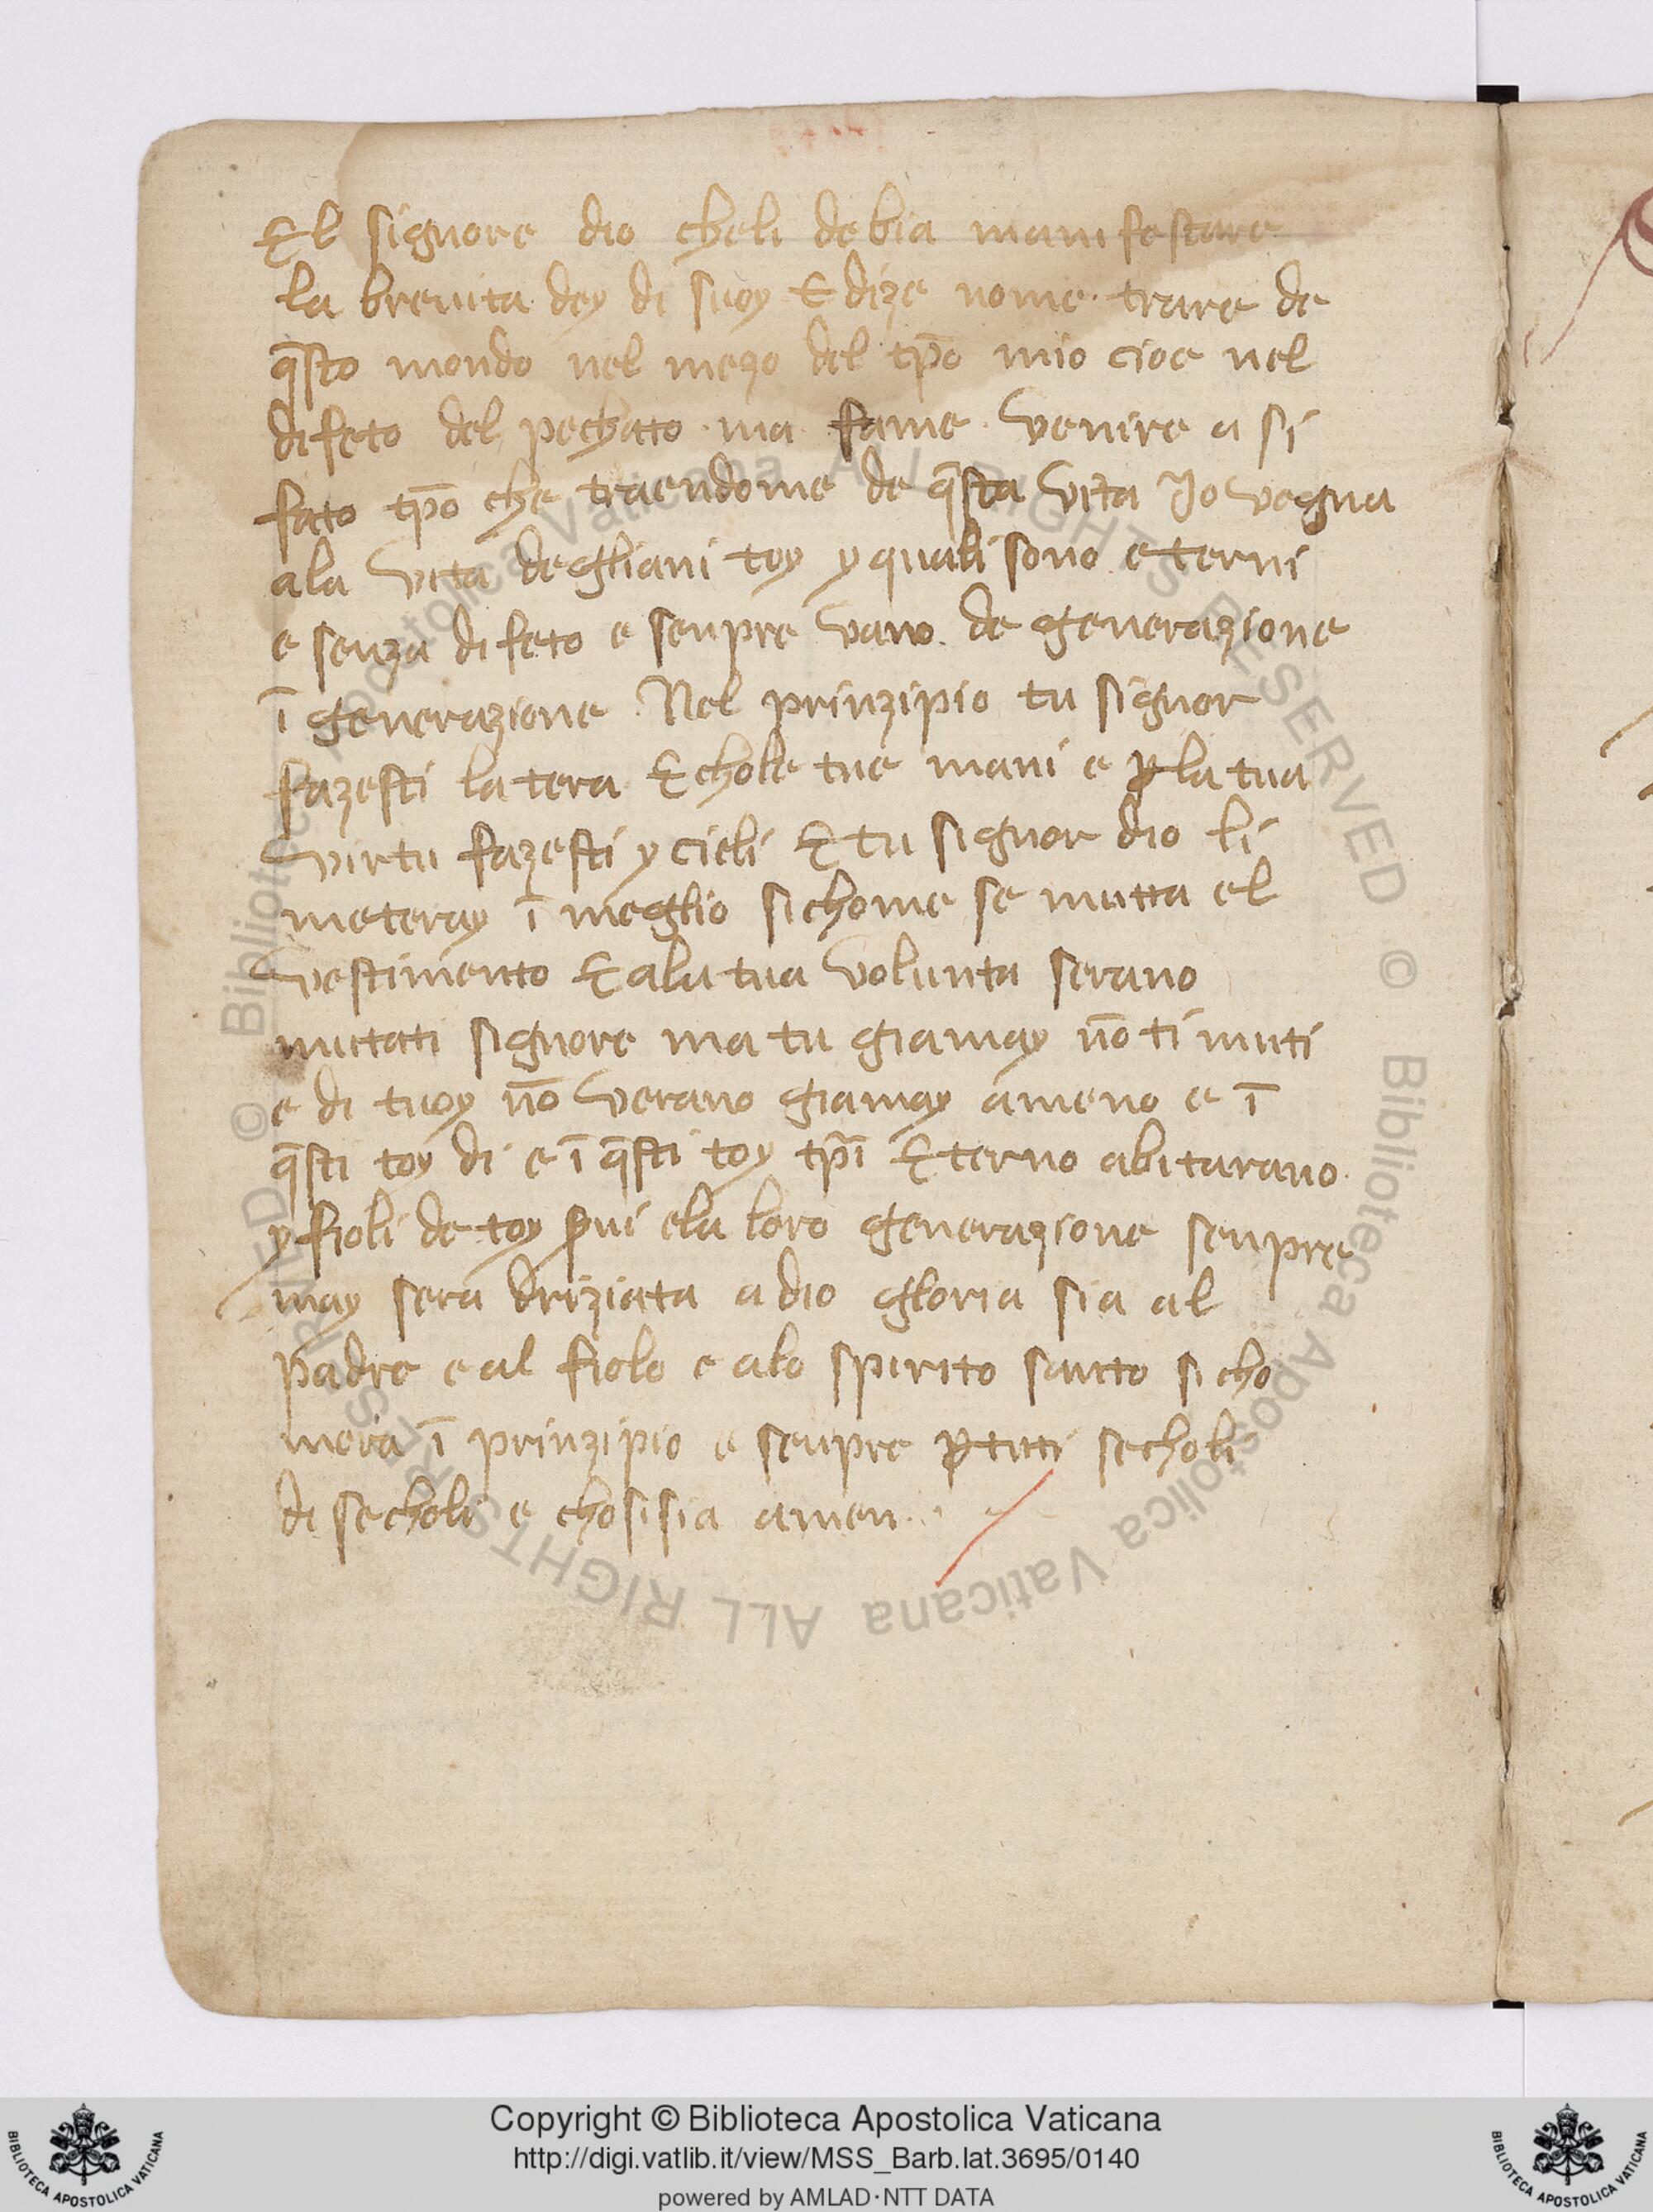 El signore dio cheli debia manifestare
la brevita dey di suoy E dize nome trare de
q̄sto mondo nel mezo del tp̄o mio cioe nel
difeto del pechato ma fame venire a si
fato tp̄o che traendome de q̄sta vita Jo vegna
ala vita degliani toy y quali sono eterni
e senza difeto e senpre vano de generazione
ī generazione Nel prinzipio tu signor
fazesti la tera E chole tue mani e ꝑ la tua
virtu fazesti y cieli E tu signor dio li
meteray ī meglio sichome se mutta el
vestimento E ala tua volunta serano
muttati signore ma tu giamay nō ti muti
e di tuoy nō verano giamay ameno e ī
q̄sti toy di e ī q̄sti toy tp̄i Eterno abitarano
y fioli de toy s̄ui ela loro generazione senpre
may sera driziata a dio gloria sia al
padre e al fiolo e alo spirito santo si cho
mera ī prinzipio e senpre ꝑ tutti secholi
di secholi e chosi sia amen
© Biblioteca Apostolica Vaticana ALL RIGHTS RESERVED © Biblioteca Apostolica Vaticana ALL RIGHTS RESERVED
BIBLIOTECA APOSTOLICA VATICANA
Copyright © Biblioteca Apostolica Vaticana
http://digi.vatlib.it/view/MSS_Barb.lat.3695/0140
powered by AMLAD·NTT DATA
BIBLIOTECA APOSTOLICA VATICANA